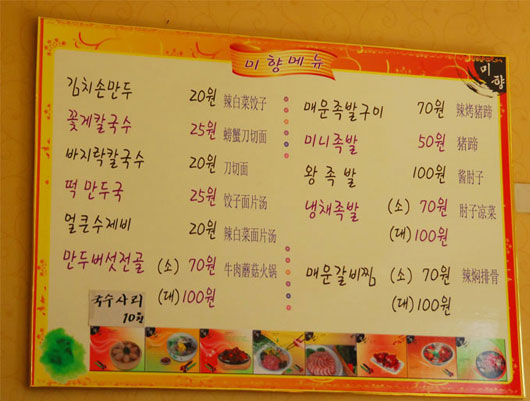 미향메뉴
미향
김치손만두 20원 辣白菜饺子
꽃게칼국수 25원 螃蟹刀切面
바지락칼국수 20원 刀切面
떡 만두국 25원 饺子面片汤
얼큰수제비 20원 辣白菜面片汤
만두버섯전골 (소) 70원 牛肉蘑菇火锅
(대) 100원
국수사리
10원
매운족발구이 70원 辣烤猪蹄
미니족발 50원 猪蹄
왕족발 100원 酱肘子
냉채족발 (소) 70원 肘子凉菜
(대) 100원
매운갈비찜 (소) 70원 辣焖排骨
(대) 100원